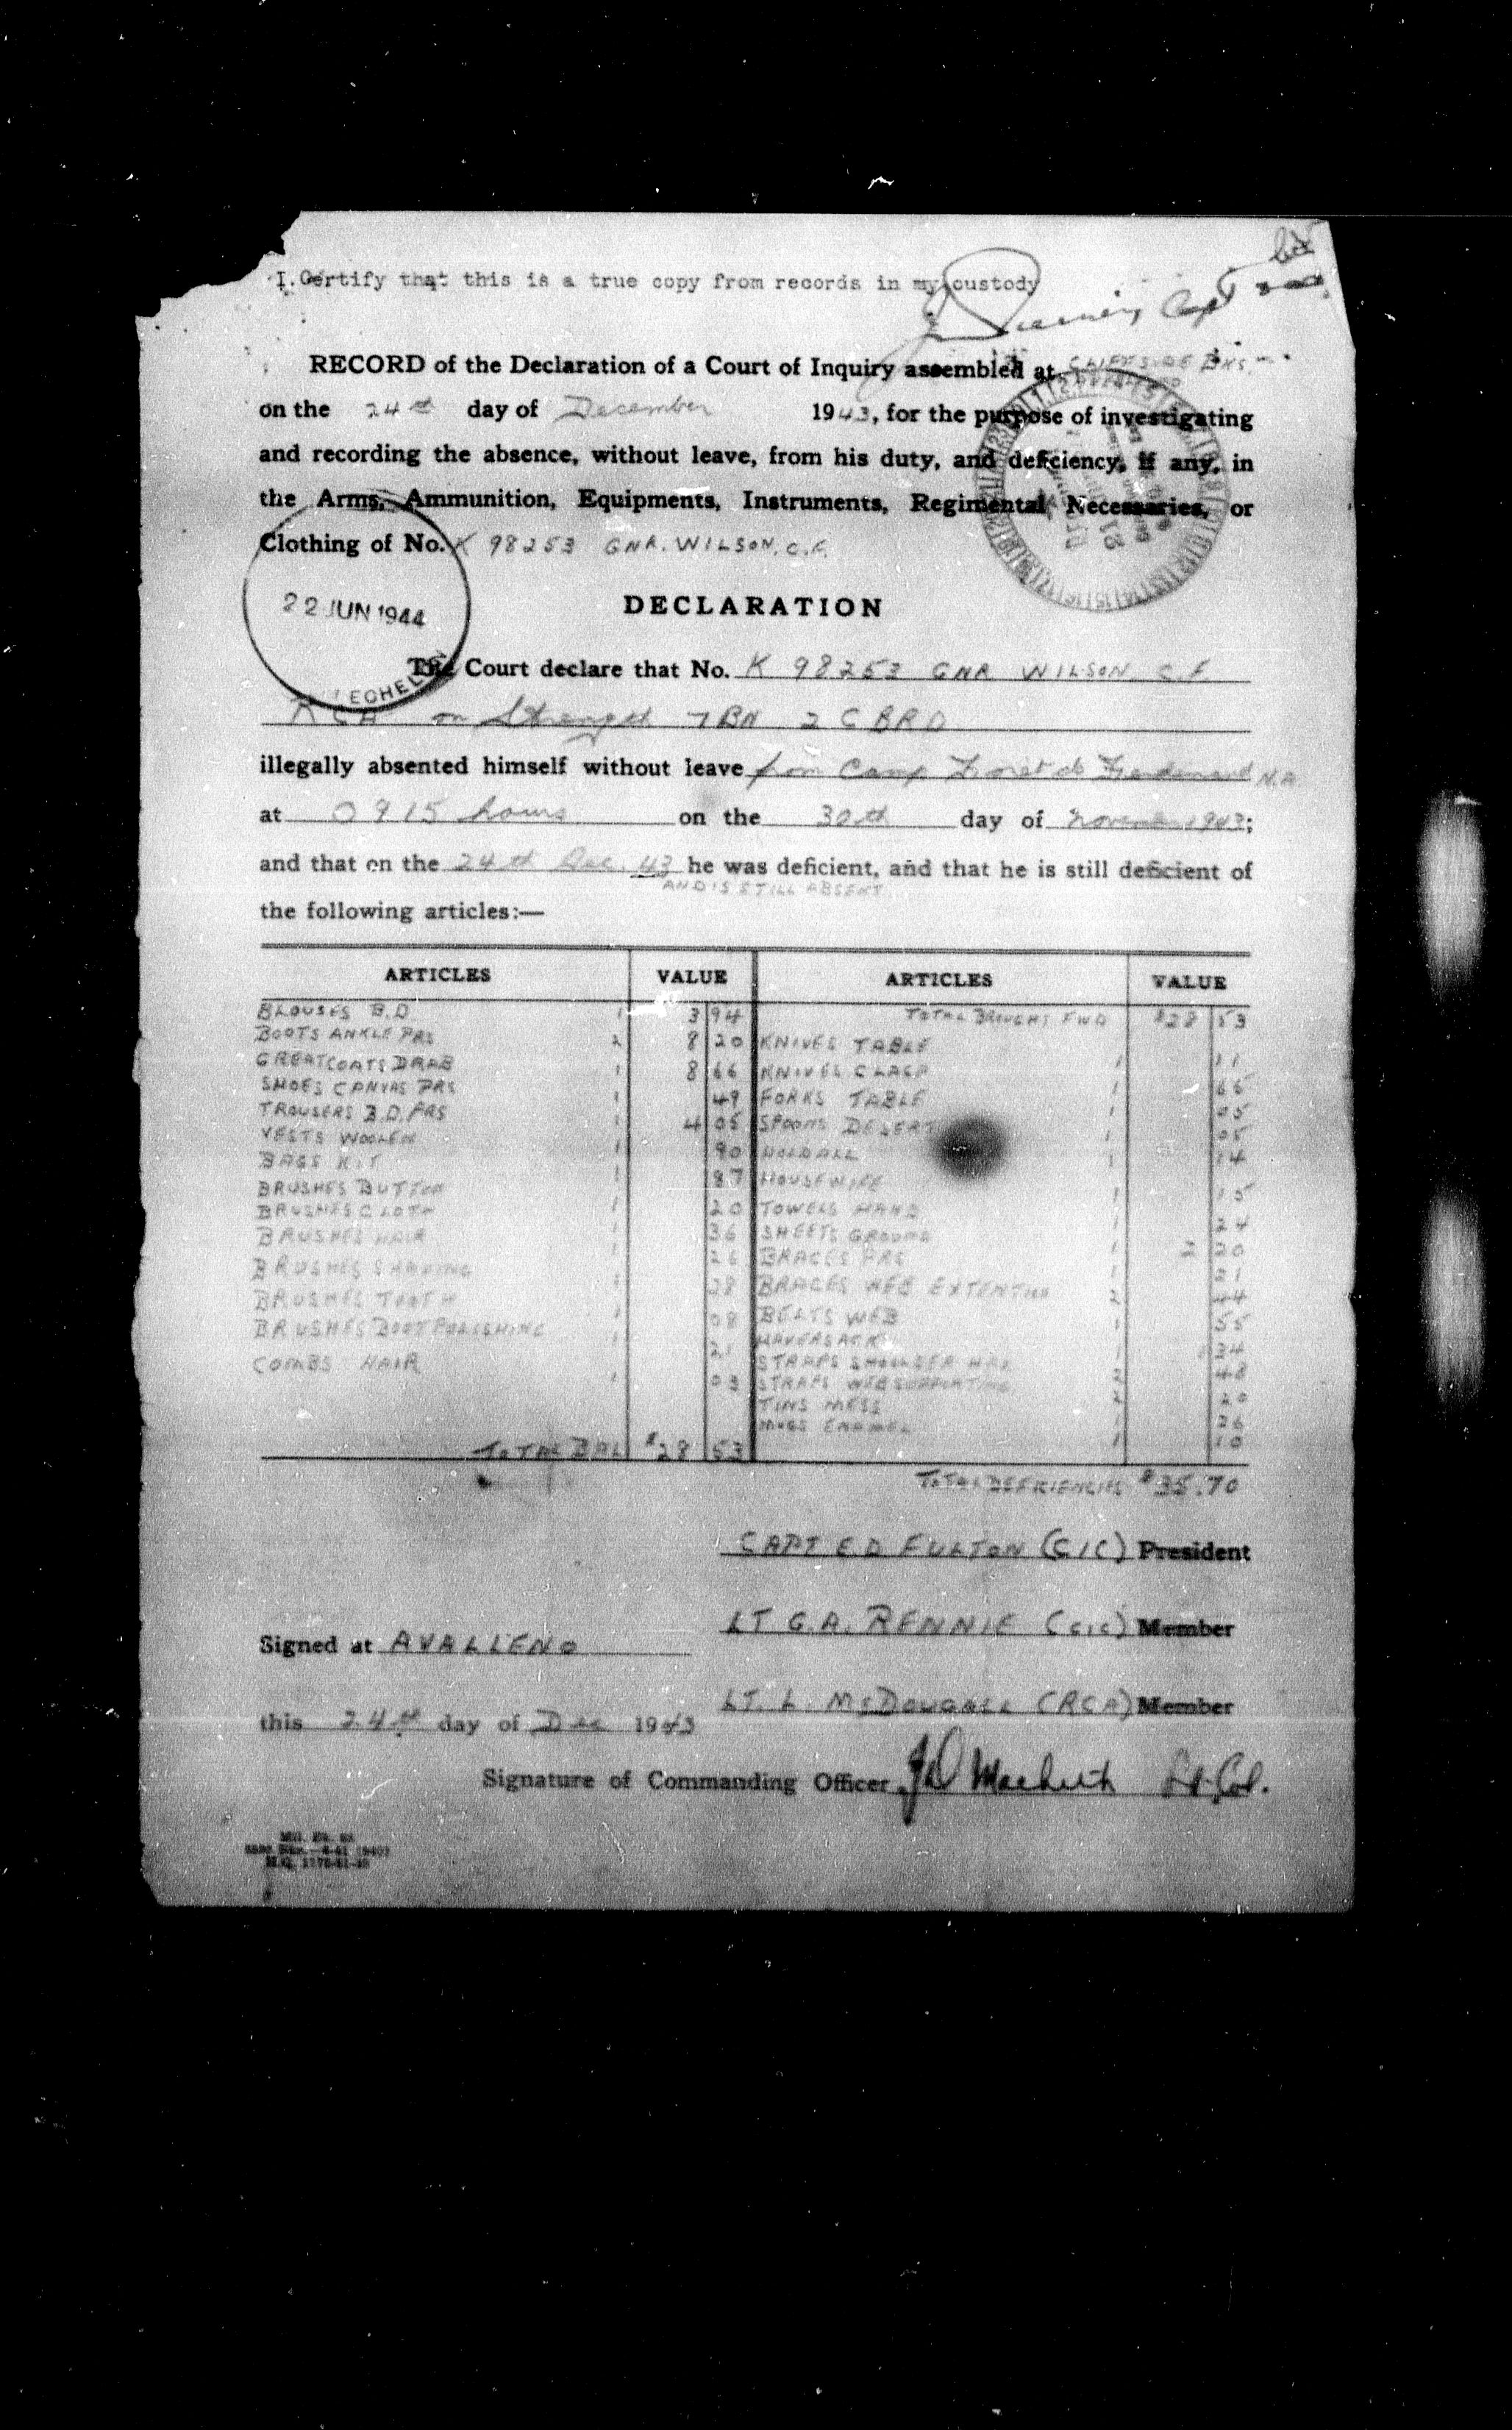 I Certify that this is a true copy from records in my custody
Capt
RECORD of the Declaration of a Court of Inquiry assembled at
on the 24th day of December 1943, for the purpose of investigating
and recording the absence, without leave, from his duty, and deficiency, if any, in
the Arms, Ammunition, Equipments, Instruments, Regimental Necessaries, or
Clothing of No. K 98253 GNR. WILSON, C.F.
22 JUN 1944
DECLARATION
The Court declare that No. K 98253 GNR WILSON. C.F.
RCA on Strength 7 BN 2 CBRD
illegally absented himself without leave from Camp N.A.
at 0915 hours on the 30th day of November 1943;
and that on the 24th Dec. 43 he was deficient, and that he is still deficient of
AND IS STILL ABSENT
the following articles:—
ARTICLES VALUE ARTICLES VALUE
BLOUSES B.D. 1 3 94 TOTAL BROUGHT FWD $28 53
BOOTS ANKLE PRS 2 8 20 KNIVES TABLE 1 11
GREATCOATS DRAB 1 8 66 KNIVES CLASP 1 65
SHOES CANVAS PRS 1 49 FORKS TABLE 1 05
TROUSERS B.D. PRS 1 4 05 SPOONS DESERT 1 05
VESTS WOOLEN 1 90 HOLDALL 1 14
BAGS KIT 1 87 HOUSEWIFE 1 15
BRUSHES BUTTON 1 20 TOWELS HAND 1 24
BRUSHES CLOTH 1 36 SHEETS GROUND 1 2 20
BRUSHES HAIR 1 26 BRACES PRS 1 21
BRUSHES SHAVING 1 28 BRACES WEB 2 44
BRUSHES TOOTH 1 08 BELTS WEB 1 55
BRUSHES BOOT POLISHING 1 21 HAVERSACK 1 34
COMBS HAIR 1 03 STRAPS SHOULDER 2 48
STRAPS WEB SUPPORTING 2 20
TINS MESS 1 26
MUGS ENAMEL 1 10
TOTAL BAL $28 53
TOTAL DEFICIENCIES $35.70
CAPT E D FULTON (CIC) President
LT G.A. RENNIE (CIC) Member
Signed at AVALLENO
LT. L. McDOUGALL (RCA) Member
this 24th day of Dec 1943
Signature of Commanding Officer J D Macbeth Lt. Col.